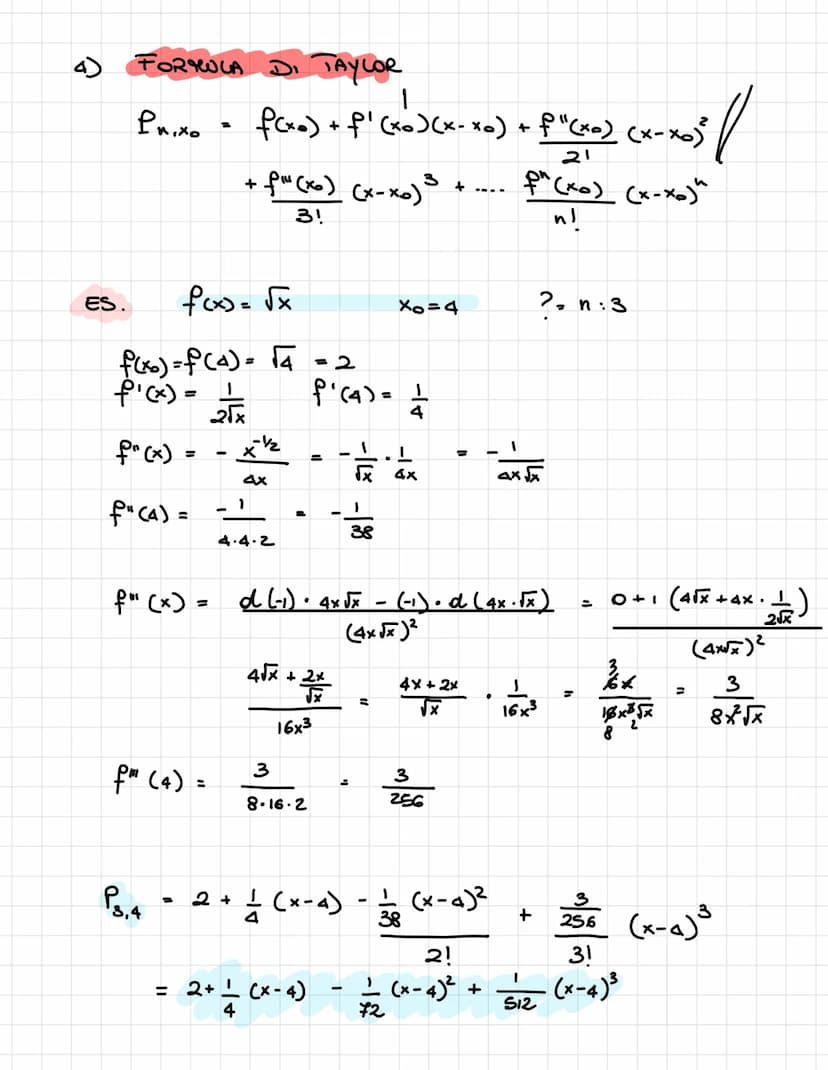 4) FORMULA DI TAYLOR
Pn,x₀ = f(x₀) + f'(x₀)(x-x₀) + f"(x₀)/2! (x-x₀)² //
+ f'''(x₀)/3! (x-x₀)³ + .... fⁿ(x₀)/n! (x-x₀)ⁿ
ES. f(x) = √x x₀=4 ?= n:3
f(x₀)=f(4)= √4 = 2
f'(x) = 1/2√x f'(4) = 1/4
f"(x) = - x^-1/2/4x = - 1/√x · 1/4x = - 1/4x√x
f"(4) = -1/4·4·2 = -1/38
f'''(x) = d(-1)·4x√x - (-1)·d(4x·√x)/(4x√x)² = 0+1(4√x+4x·1/2√x)/(4x√x)²
4√x + 2x/√x/16x³ = 4x+2x/√x · 1/16x³ = 6x/16x³√x = 3/8x²√x
f'''(4) = 3/8·16·2 = 3/256
P3,4 = 2 + 1/4 (x-4) - 1/38 (x-4)²/2! + 3/256/3! (x-4)³
= 2+1/4 (x-4) - 1/72 (x-4)² + 1/512 (x-4)³